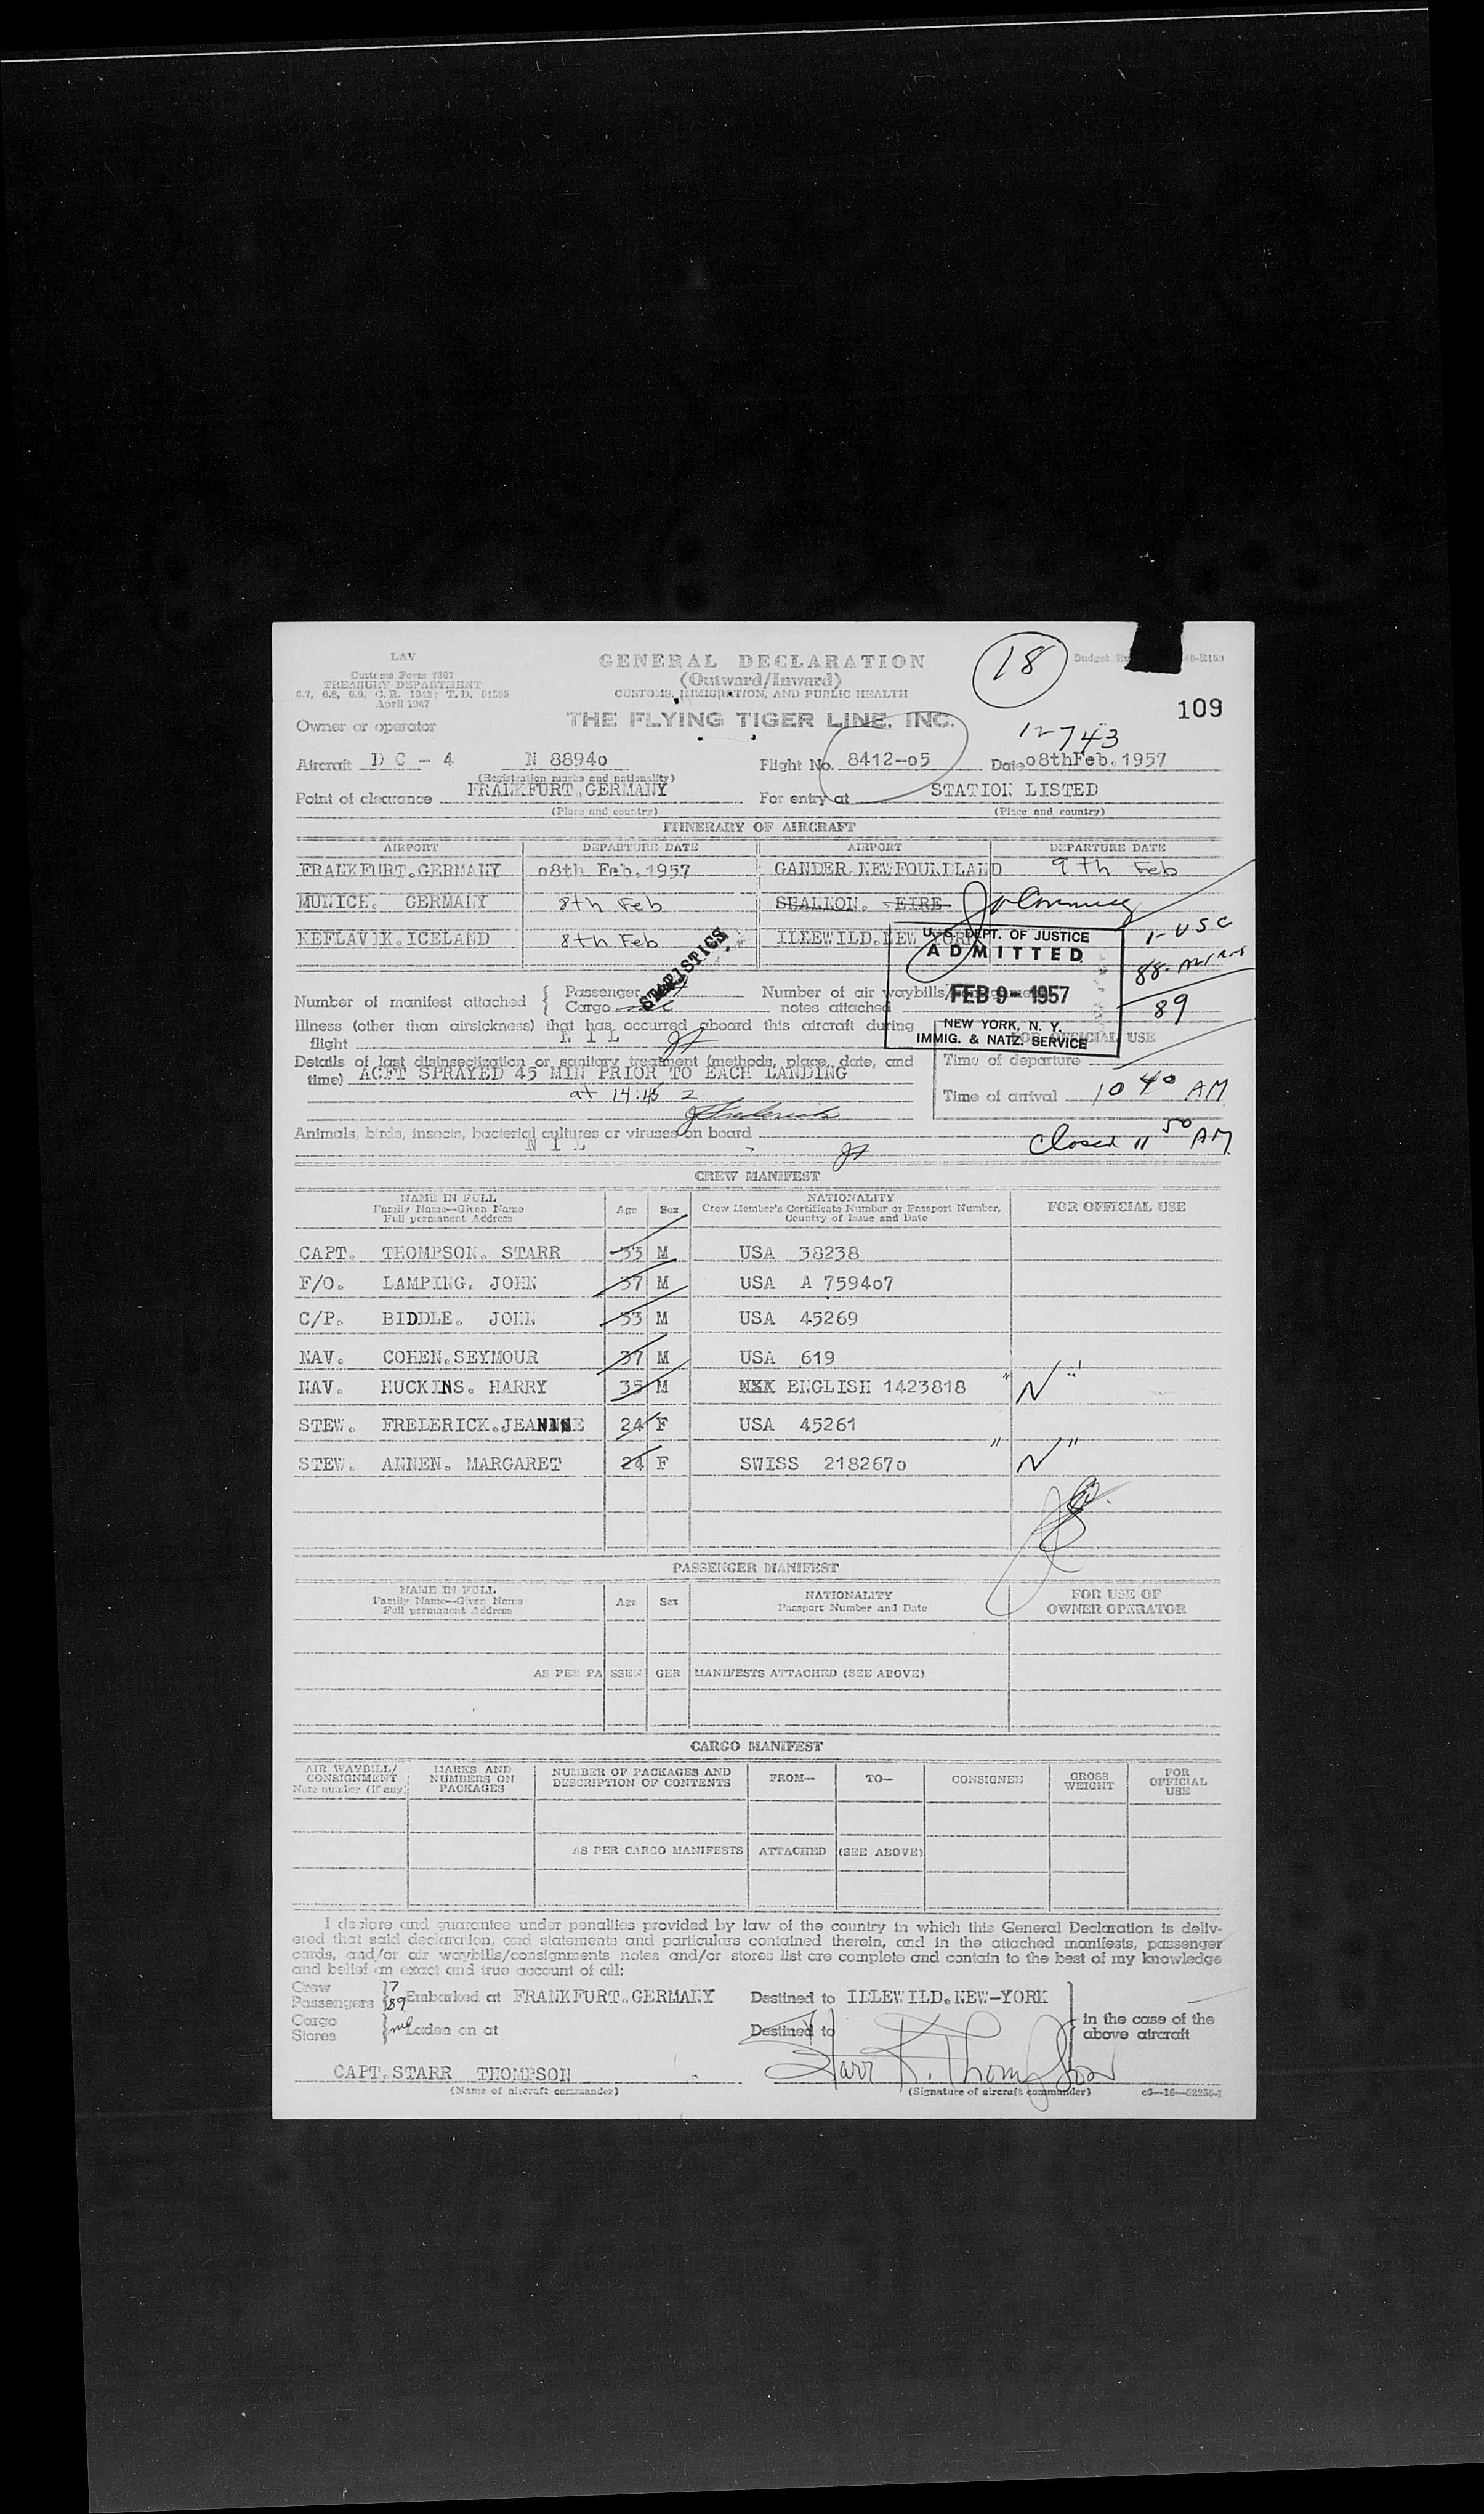 LAV
Customs Form 7507
TREASURY DEPARTMENT
April 1947
GENERAL DECLARATION
(Outward/Inward)
CUSTOMS, IMMIGRATION, AND PUBLIC HEALTH
18
109
Owner or operator THE FLYING TIGER LINE, INC.
12743
Aircraft D C - 4 N 8894o Flight No. 8412-o5 Date o8thFeb.1957
(Registration marks and nationality)
Point of clearance FRANKFURT.GERMANY For entry at STATION LISTED
(Place and country) (Place and country)
ITINERARY OF AIRCRAFT
AIRPORT DEPARTURE DATE AIRPORT DEPARTURE DATE
FRANKFURT.GERMANY o8th Feb.1957 GANDER.NEWFOUNDLAND 9th Feb
MUNICH. GERMANY 8th Feb SHALLON. EIRE
KEFLAVIK.ICELAND 8th Feb IDLEWILD.NEW YORK
1-USC
88-
89
STATISTICS
U. S. DEPT. OF JUSTICE
ADMITTED
FEB 9 - 1957
NEW YORK, N. Y.
IMMIG. & NATZ. SERVICE
Number of manifest attached { Passenger Number of air waybills/
Cargo notes attached
Illness (other than airsickness) that has occurred aboard this aircraft during
flight N I L
FOR OFFICIAL USE
Details of last disinsectization or sanitary treatment (methods, place, date, and
time) ACFT SPRAYED 45 MIN PRIOR TO EACH LANDING
Time of departure
at 14:45 Z
Time of arrival 10 40 AM
Animals, birds, insects, bacterial cultures or viruses on board
N I L
Closed 11 50 AM
CREW MANIFEST
NAME IN FULL
Family Name—Given Name
Full permanent Address
Age Sex
NATIONALITY
Crew Member's Certificate Number or Passport Number,
Country of Issue and Date
FOR OFFICIAL USE
CAPT. THOMPSON. STARR 33 M USA 38238
F/O. LAMPING. JOHN 37 M USA A 7594o7
C/P. BIDDLE. JOHN 33 M USA 45269
NAV. COHEN.SEYMOUR 37 M USA 619
NAV. HUCKINS. HARRY 35 M XXX ENGLISH 1423818 "N"
STEW. FREDERICK.JEANINE 24 F USA 45261
STEW. ANNEN. MARGARET 24 F SWISS 218267o "N"
PASSENGER MANIFEST
NAME IN FULL
Family Name—Given Name
Full permanent Address
Age Sex
NATIONALITY
Passport Number and Date
FOR USE OF
OWNER OPERATOR
AS PER PASSENGER MANIFESTS ATTACHED (SEE ABOVE)
CARGO MANIFEST
AIR WAYBILL/
CONSIGNMENT
Note number (if any)
MARKS AND
NUMBERS ON
PACKAGES
NUMBER OF PACKAGES AND
DESCRIPTION OF CONTENTS
FROM— TO— CONSIGNEE
GROSS
WEIGHT
FOR
OFFICIAL
USE
AS PER CARGO MANIFESTS ATTACHED (SEE ABOVE)
I declare and guarantee under penalties provided by law of the country in which this General Declaration is deliv-
ered that said declaration, and statements and particulars contained therein, and in the attached manifests, passenger
cards, and/or air waybills/consignments notes and/or stores list are complete and contain to the best of my knowledge
and belief an exact and true account of all:
Crew } 7
Passengers } 89 Embarked at FRANKFURT.GERMANY Destined to IDLEWILD.NEW-YORK
Cargo
Stores } nil Laden on at Destined to
in the case of the
above aircraft
CAPT.STARR THOMPSON Starr K. Thompson
(Name of aircraft commander) (Signature of aircraft commander)